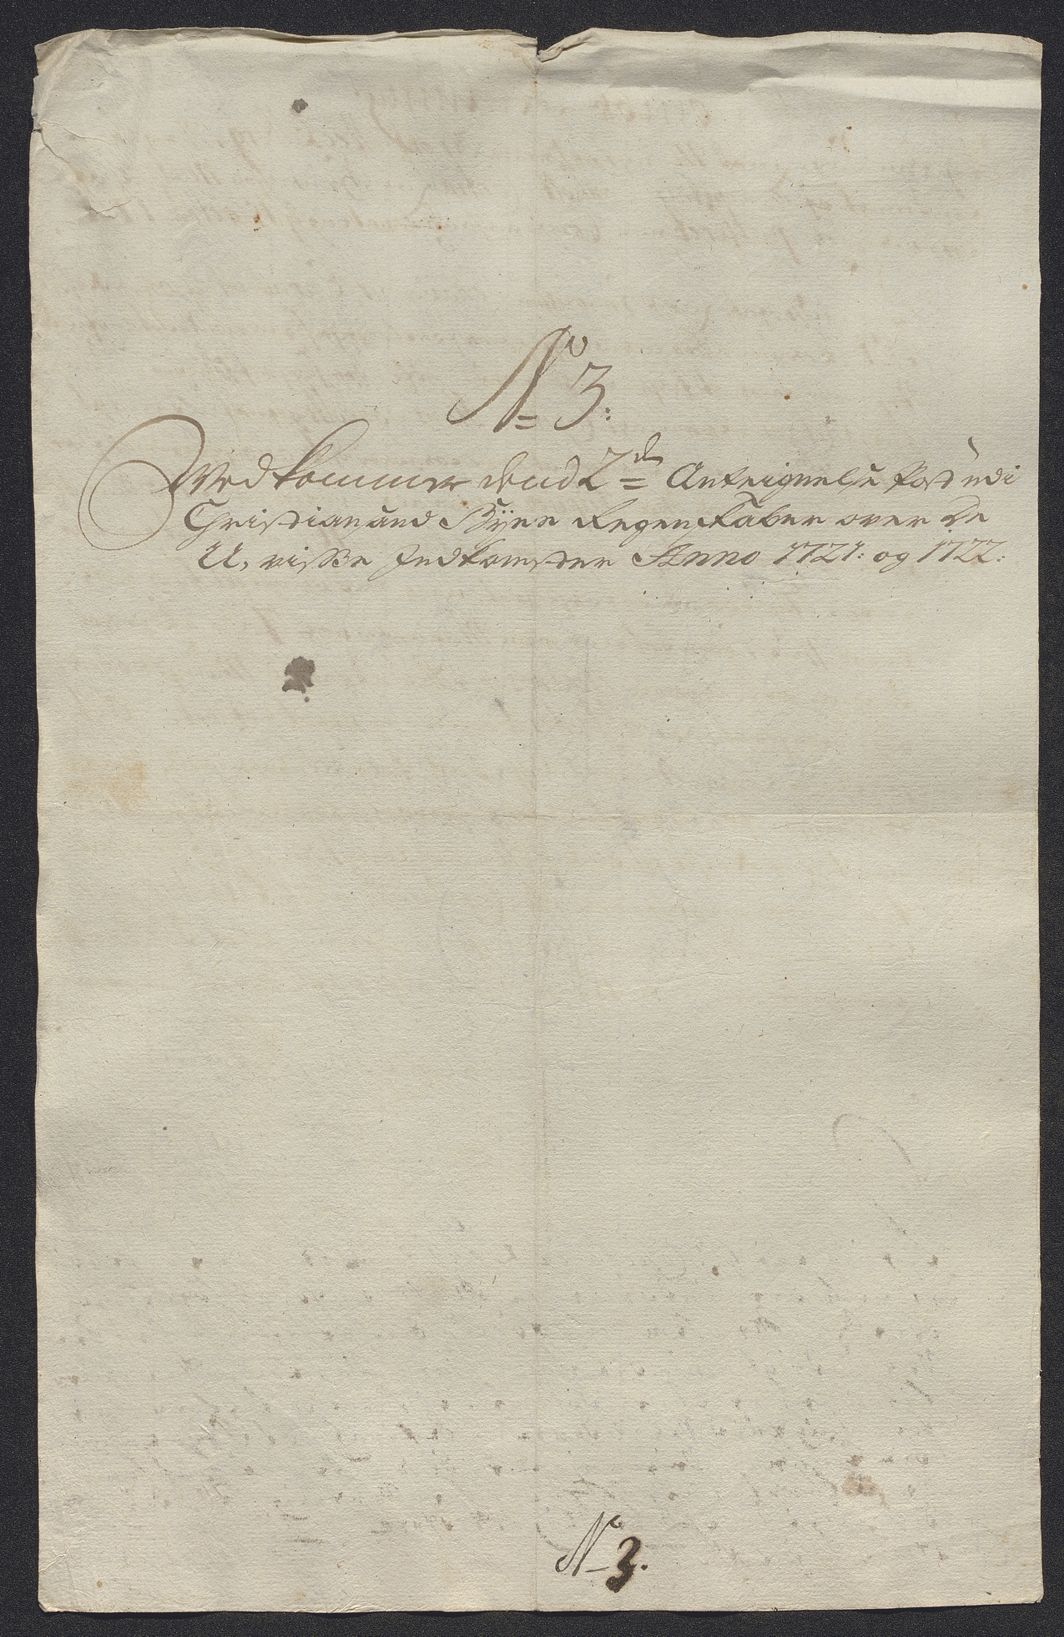 No 3:
Vedkommer dend 2de Anteignelse Post udi
Christiansand Byes Regenskaber over de
U, visse Indkomster Anno 1721: og 1722:
No 3.